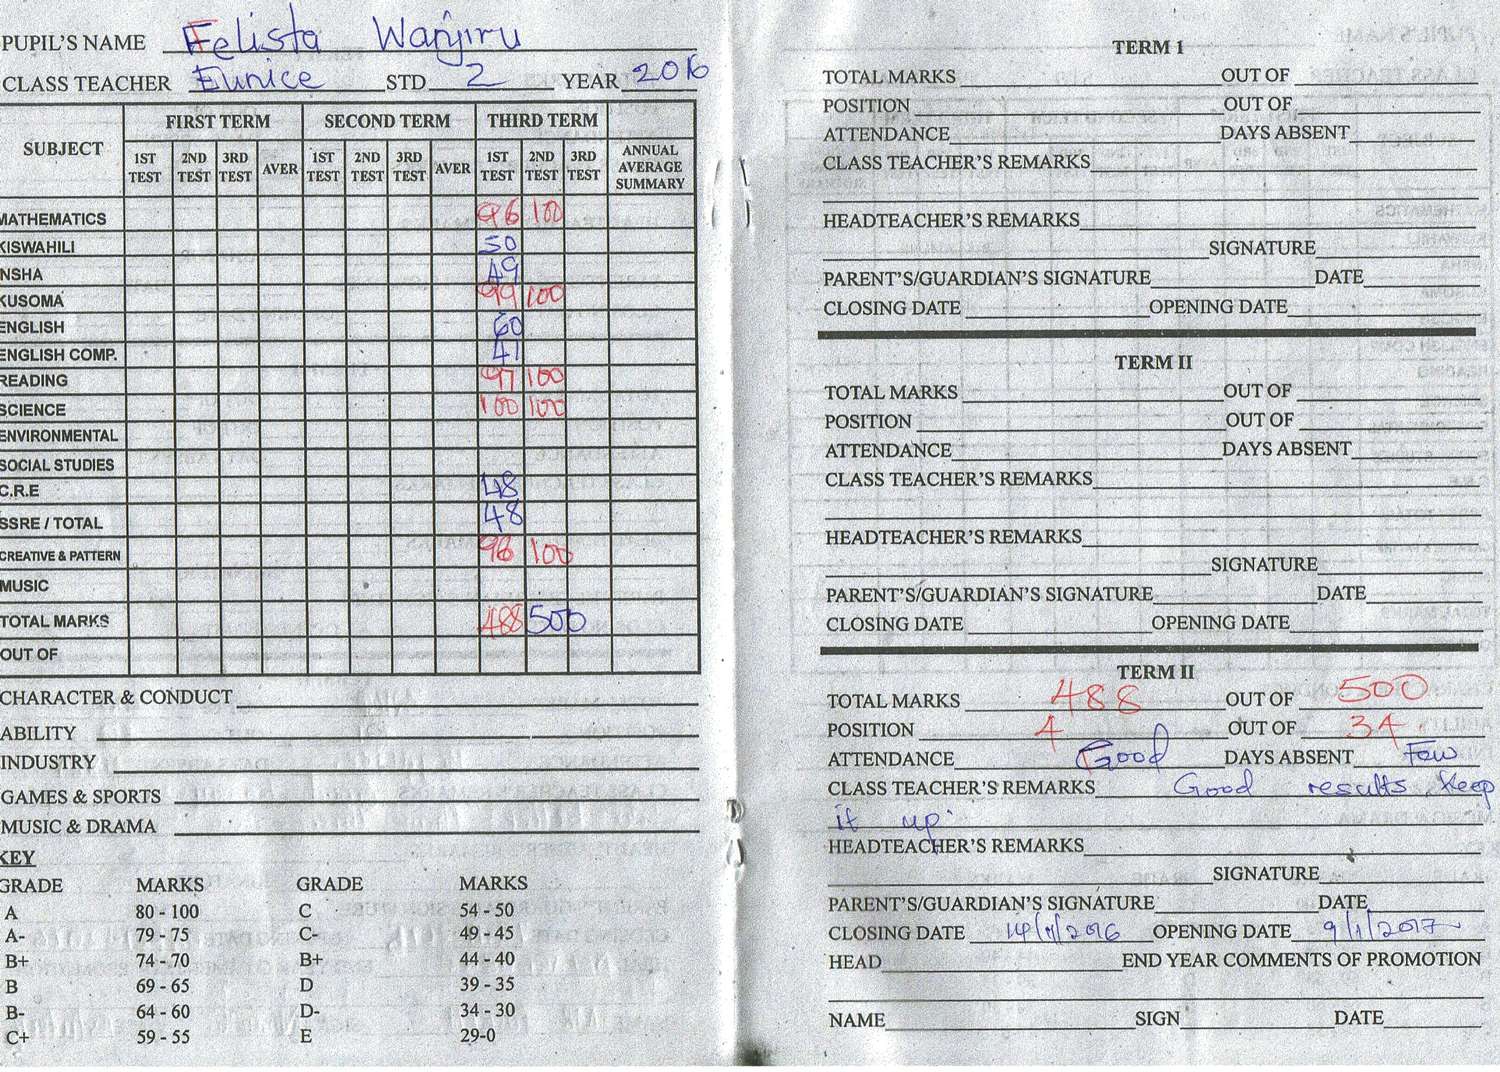 PUPIL'S NAME Felista Wanjiru
CLASS TEACHER Eunice STD 2 YEAR 2016
SUBJECT FIRST TERM SECOND TERM THIRD TERM ANNUAL AVERAGE SUMMARY
1ST TEST 2ND TEST 3RD TEST AVER 1ST TEST 2ND TEST 3RD TEST AVER 1ST TEST 2ND TEST 3RD TEST
MATHEMATICS 96 100
KISWAHILI 50
INSHA 49
KUSOMA 99 100
ENGLISH 60
ENGLISH COMP. 47
READING 97 100
SCIENCE 100 100
ENVIRONMENTAL
SOCIAL STUDIES
C.R.E 48
SSRE / TOTAL 48
CREATIVE & PATTERN 96 100
MUSIC
TOTAL MARKS 488 500
OUT OF
CHARACTER & CONDUCT
ABILITY
INDUSTRY
GAMES & SPORTS
MUSIC & DRAMA
KEY
GRADE MARKS GRADE MARKS
A 80 - 100 C 54 - 50
A- 79 - 75 C- 49 - 45
B+ 74 - 70 B+ 44 - 40
B 69 - 65 D 39 - 35
B- 64 - 60 D- 34 - 30
C+ 59 - 55 E 29-0
TERM 1
TOTAL MARKS OUT OF
POSITION OUT OF
ATTENDANCE DAYS ABSENT
CLASS TEACHER'S REMARKS
HEADTEACHER'S REMARKS
SIGNATURE
PARENT'S/GUARDIAN'S SIGNATURE DATE
CLOSING DATE OPENING DATE
TERM II
TOTAL MARKS OUT OF
POSITION OUT OF
ATTENDANCE DAYS ABSENT
CLASS TEACHER'S REMARKS
HEADTEACHER'S REMARKS
SIGNATURE
PARENT'S/GUARDIAN'S SIGNATURE DATE
CLOSING DATE OPENING DATE
TERM II
TOTAL MARKS 488 OUT OF 500
POSITION 4 OUT OF 34
ATTENDANCE Good DAYS ABSENT Few
CLASS TEACHER'S REMARKS Good results, keep
it up.
HEADTEACHER'S REMARKS
SIGNATURE
PARENT'S/GUARDIAN'S SIGNATURE DATE
CLOSING DATE 14/11/2016 OPENING DATE 9/1/2017
HEAD END YEAR COMMENTS OF PROMOTION
NAME SIGN DATE